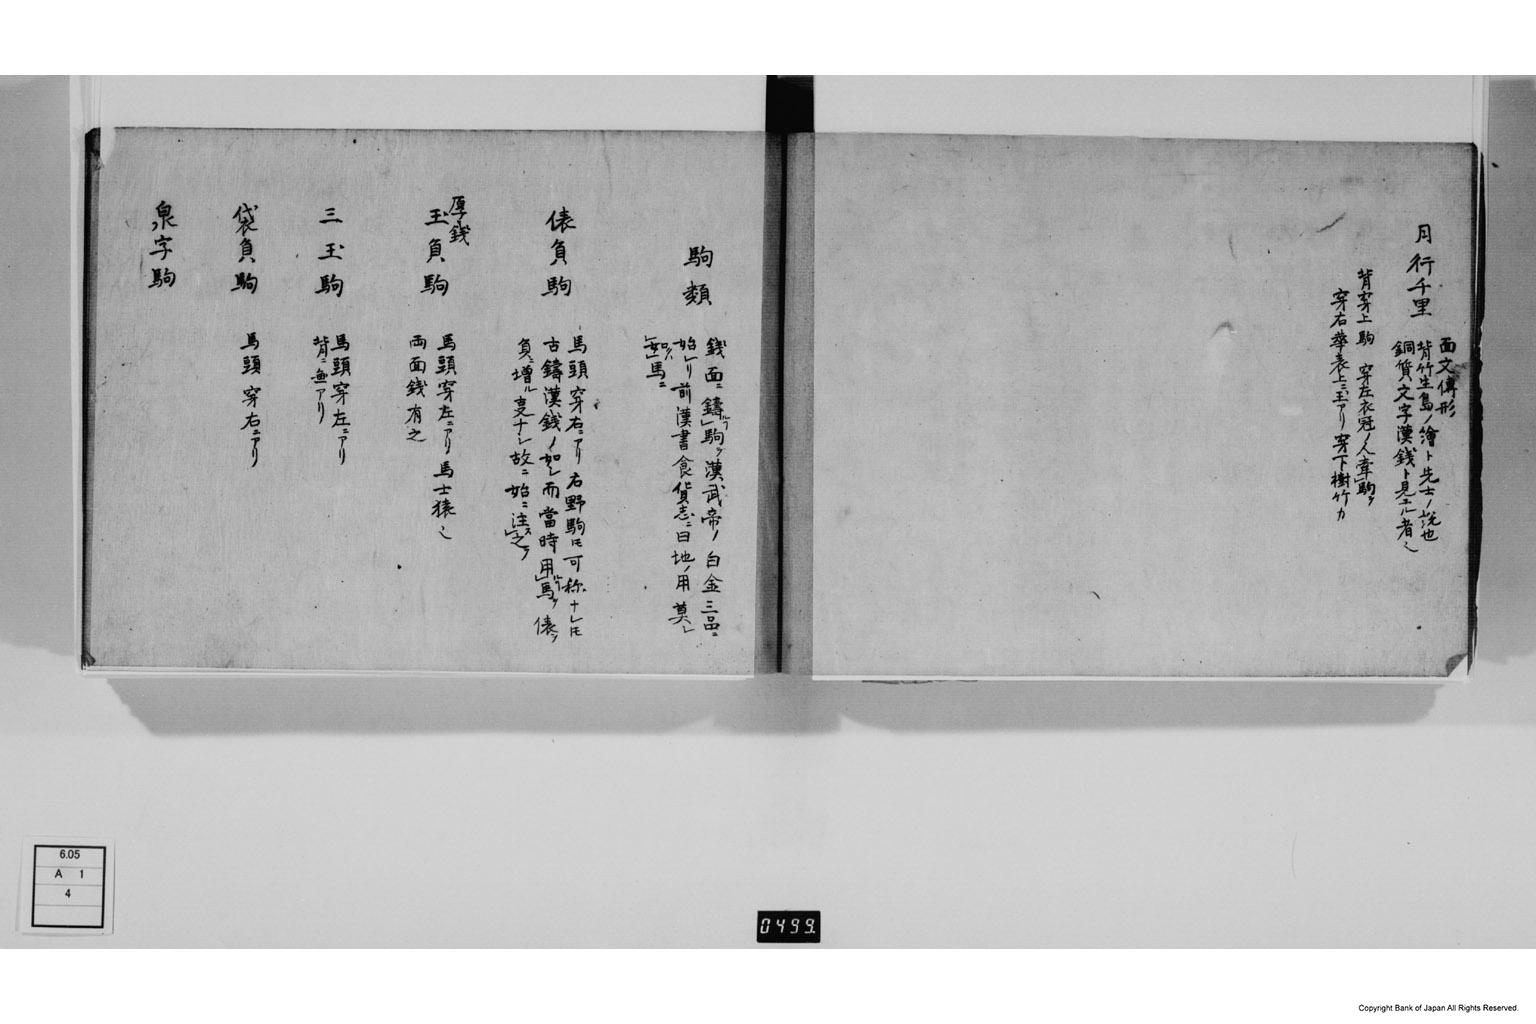 月行千里
面文傳形
背竹生島ノ繪ト先士ノ説也
銅質文字漢銭ト見エル者也
背穿上駒 穿左衣冠ノ人牽駒ヲ
穿右華表上ニ玉アリ穿下樹竹カ
駒類
銭面ニ鑄ル駒ヲ漢武帝ノ白金三品ニ
始レリ前漢書食貨志ニ曰地ノ用莫レ
如ハ馬ニ
俵負駒
馬頭穿右ニアリ右野駒ニモ可称ナレ𪜈
古鑄漢銭ノ如シ而當時用ル馬ヲ俵ヲ
負ニ増ル支ナシ故ニ始ニ注ス之ヲ
厚銭
玉負駒
馬頭穿左ニアリ馬士猿也
両面銭有之
三玉駒
馬頭穿左ニアリ
背ニ無アリ
袋負駒
馬頭穿右ニアリ
泉字駒
6.05
A 1
4
0499.
Copyright Bank of Japan All Rights Reserved.